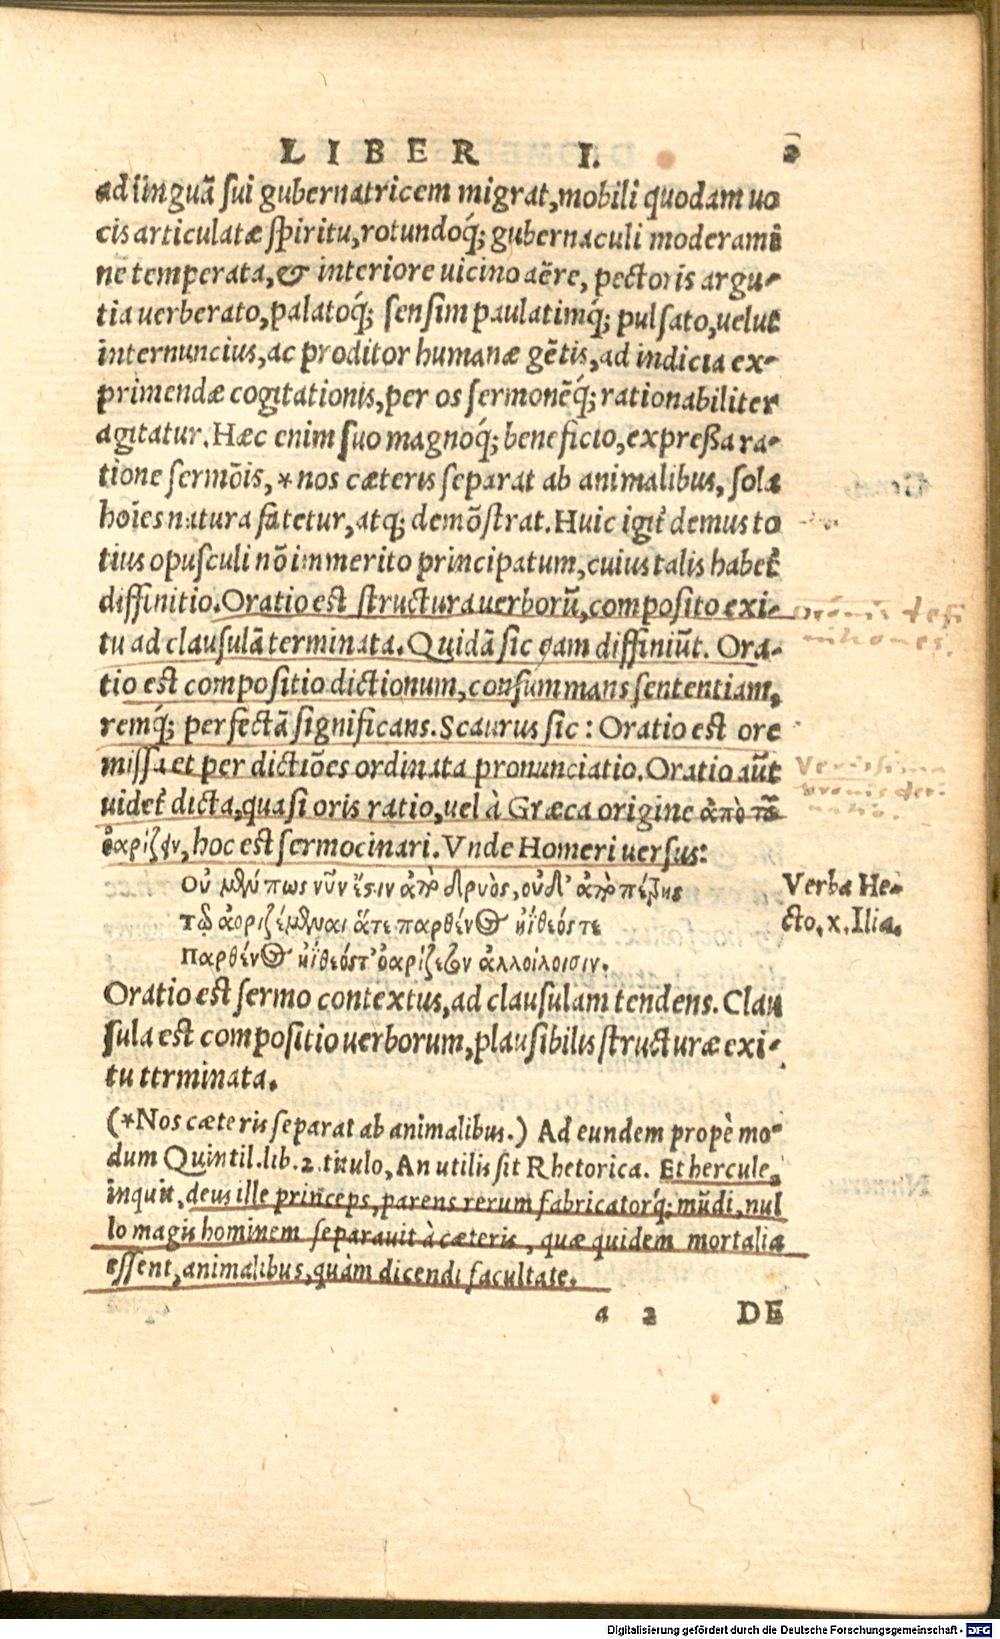 LIBER I. 2
ad linguā sui gubernatricem migrat, mobili quodam uo
cis articulatæ spiritu, rotundoq́; gubernaculi moderami
ne temperata, & interiore uicino aëre, pectoris argu-
tia uerberato, palatoq́; sensim paulatimq́; pulsato, uelut
internuncius, ac proditor humanæ gētis, ad indicia ex-
primendæ cogitationis, per os sermonēq́; rationabiliter
agitatur. Hæc enim suo magnoq́; beneficio, expreßa ra-
tione sermōis, *nos cæteris separat ab animalibus, solæ
hoīes natura fatetur, atq; demōstrat. Huic igit̃ demus to
tius opusculi nō immerito principatum, cuius talis habet̃
diffinitio. Oratio est structura uerborū, composito exi-
tu ad clausulā terminata. Quidā sic eam diffiniūt. Ora-
tio est compositio dictionum, consummans sententiam,
remq́; perfectā significans. Scaurus sic: Oratio est ore
missa et per dictiōes ordinata pronunciatio. Oratio aūt
uidet̃ dicta, quasi oris ratio, uel à Græca origine ἀπὸ τοῦ
ὀαρίζειν, hoc est sermocinari. Vnde Homeri uersus:
Οὐ μθύ πως νῦν ἔσιν ἀπὸ δρυὸς, οὐδ' ἀπὸ πέτρης
Τῷ ὀαριζέμθυαι ἅτε παρθένος ἠΐθεός τε
Παρθένος ἠΐθεός τ' ὀαρίζετον ἀλλοίλοισιν.
Verba He-
cto. x. Ilia.
Oratio est sermo contextus, ad clausulam tendens. Clau
sula est compositio uerborum, plausibilis structuræ exi-
tu ttrminata.
(*Nos cæteris separat ab animalibus.) Ad eundem propè mo-
dum Quintil. lib. 2. titulo, An utilis sit Rhetorica. Et hercule,
inquit, deus ille princeps, parens rerum fabricatorq́; mūdi, nul
lo magis hominem separauit à cæteris, quæ quidem mortalia
essent, animalibus, quàm dicendi facultate.
a 2 DE
Digitalisierung gefördert durch die Deutsche Forschungsgemeinschaft - DFG